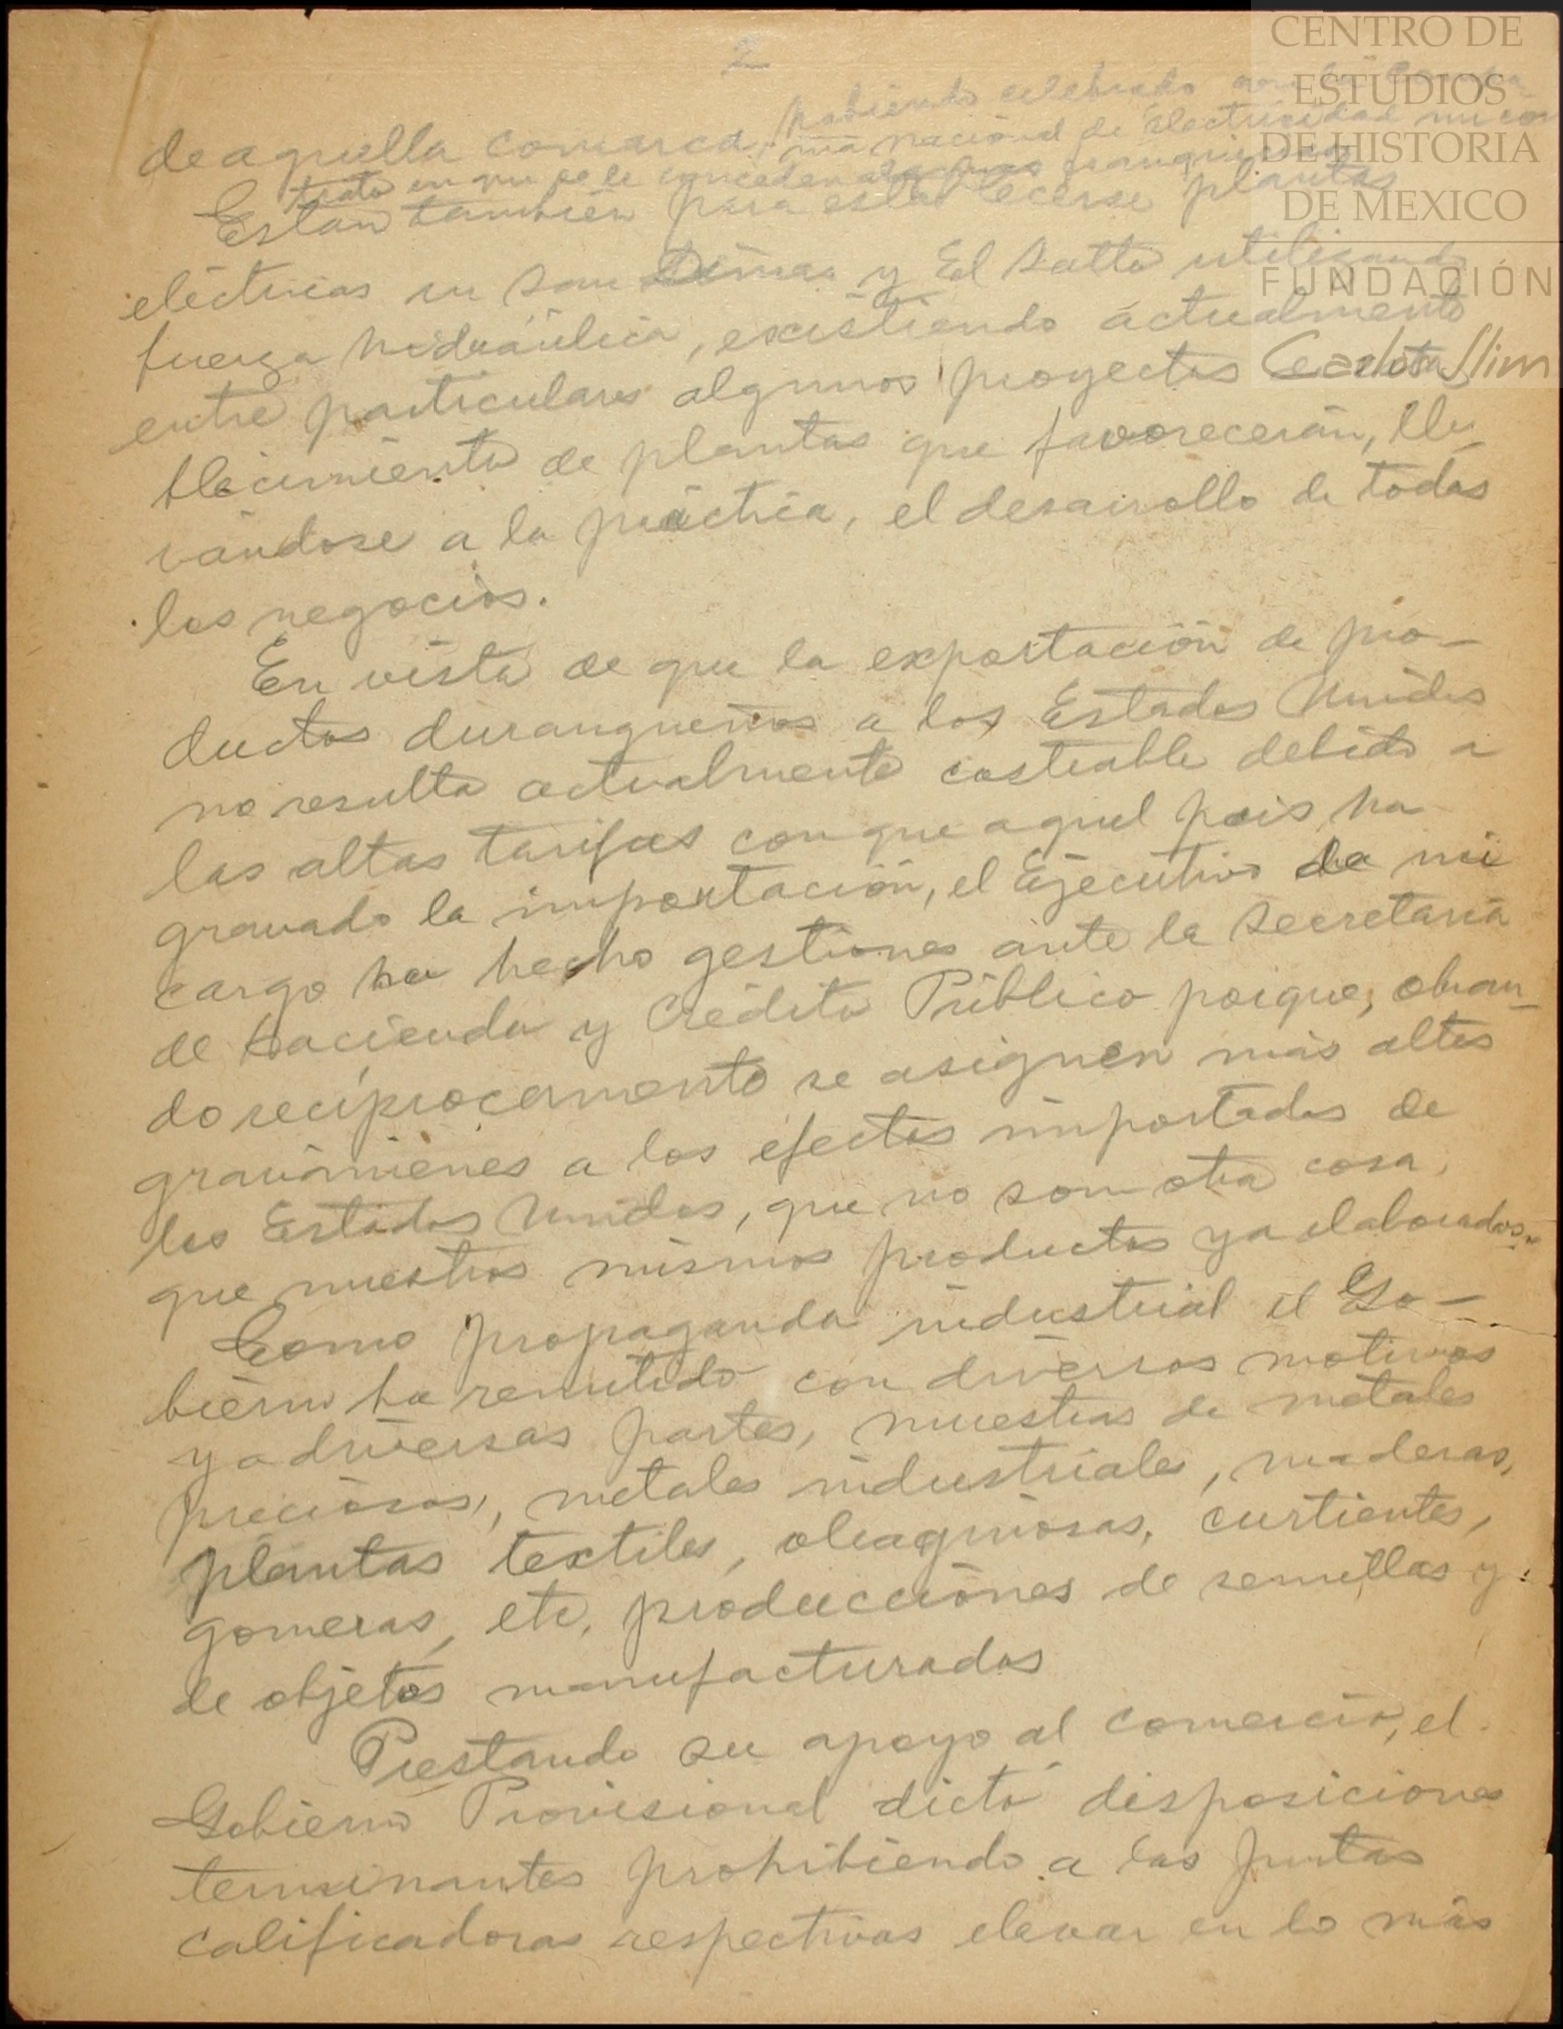 2
CENTRO DE
ESTUDIOS
DE HISTORIA
DE MEXICO
FUNDACIÓN
Carlos Slim
habiendo celebrado con la Compa-
de aquella comarca, ñía nacional de Electricidad un con
trato en que se le conceden algunas franquicias
Están también para establecerse plantas
eléctricas en San Dimas y El Salto utilizando
fuerza hidráulica, existiendo actualmente
entre particulares algunos proyectos de esta
blecimiento de plantas que favorecerán, lle
vándose a la práctica, el desarrollo de todos
los negocios.
En vista de que la exportación de pro-
ductos durangueños a los Estados Unidos
no resulta actualmente costeable debido a
las altas tarifas con que aquel pais ha
gravado la importación, el Ejecutivo de mi
cargo ha hecho gestiones ante la Secretaría
de hacienda y Crédito Público porque, obran_
do reciprocamente se asignen más altos
gravámenes a los efectos importados de
los Estados Unidos, que no son otra cosa,
que nuestros mismos productos ya elaborados.
Como propaganda industrial el Go-
bierno ha remitido, con diversos motivos
y a diversas partes, muestras de metales
preciosos, metales industriales, maderas,
plantas textiles, oleaginosas, curtientes,
gomeras, etc, producciónes de semillas y
de objetos manufacturados
Prestando su apoyo al comercio, el
Gobierno Provisional dictó disposiciones
terminantes prohibiendo a las Juntas
calificadoras respectivas elevar en lo más